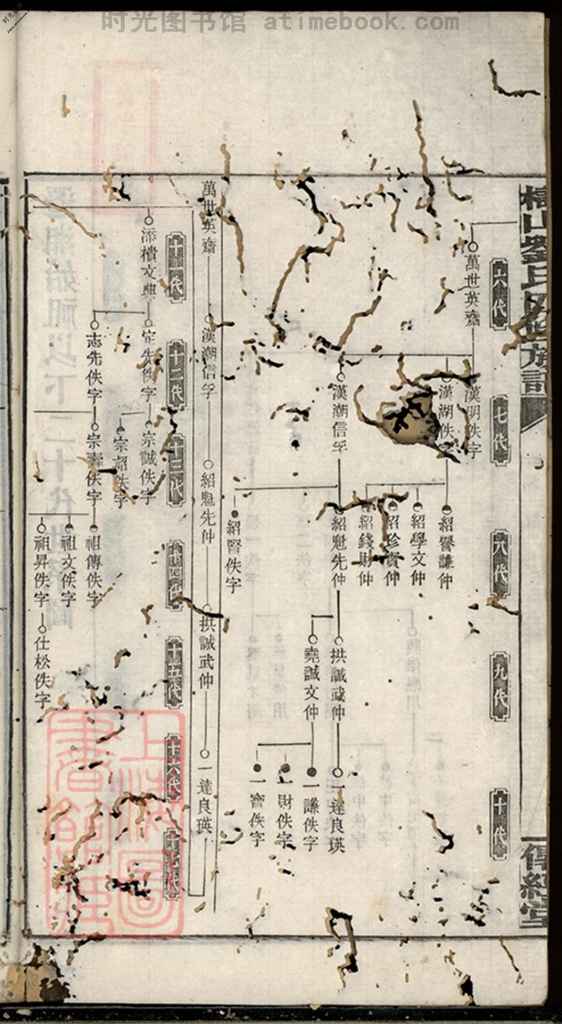 时光图书馆 atimebook.com
傳經堂
六代
七代
八代
九代
十代
萬世英齋
漢明佚字
漢湖佚字
漢潮信字
紹賢謙仲
紹學文仲
紹珍寶仲
紹錢財仲
紹魁先仲
紹賢佚字
拱誠武仲
堯誠文仲
一達良瑛
一謙佚字
一財佚字
一寶佚字
萬世英齋
漢潮信字
紹魁先仲
拱誠武仲
一達良瑛
十一代
十二代
十三代
十四代
十五代
十六代
十七代
添檣文典
志先佚字
宗誠佚字
宗韶佚字
宗壽佚字
祖傳佚字
祖文佚字
祖昇佚字
仕松佚字
上海圖書館藏